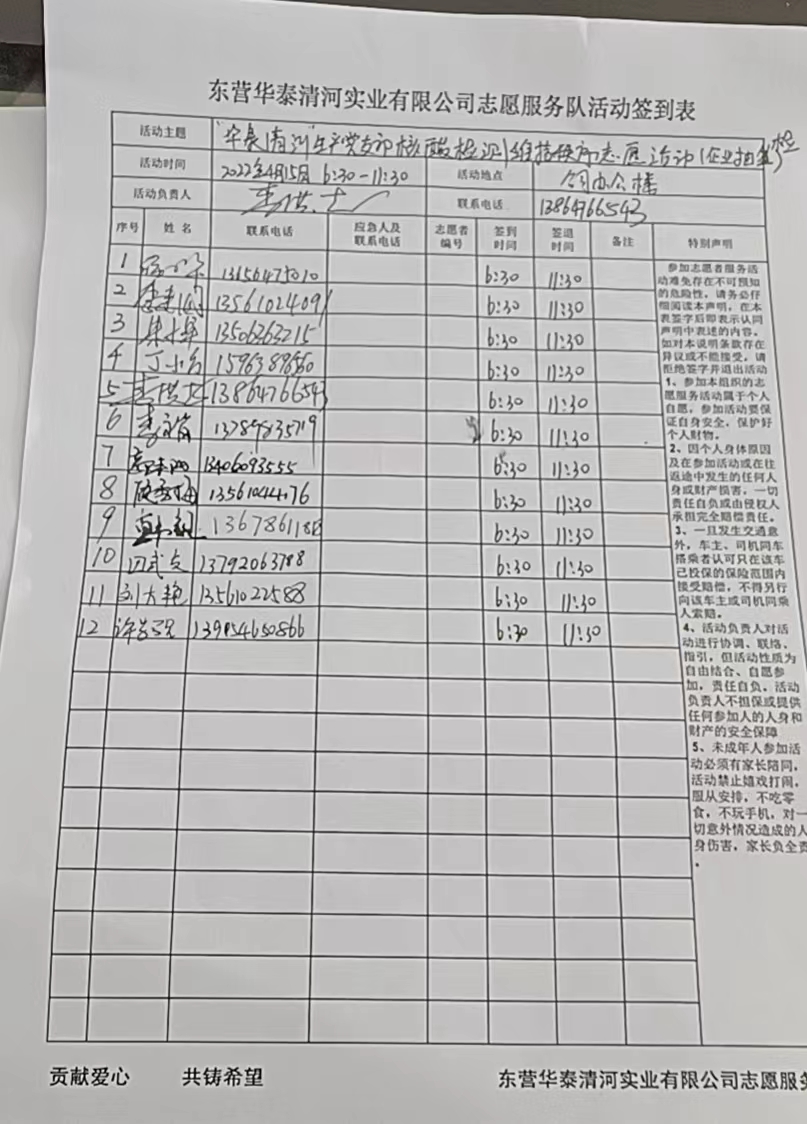 东营华泰清河实业有限公司志愿服务队活动签到表
活动主题 "华泰清河"生产党支部核酸检测维持秩序志愿活动(企业抽检)
活动时间 2022年4月15日 6:30-11:30 活动地点 公司办公楼
活动负责人 联系电话 13864766543
序号 姓名 联系电话 应急人及联系电话 志愿者编号 签到时间 签退时间 备注 特别声明
1 6:30 11:30
2 13561024091 6:30 11:30
3 13506363215 6:30 11:30
4 丁小 6:30 11:30
5 13864766543 6:30 11:30
6 6:30 11:30
7 13406093555 6:30 11:30
8 13561044476 6:30 11:30
9 6:30 11:30
10 13792063788 6:30 11:30
11 刘大艳 13561022588 6:30 11:30
12 139154650866 6:30 11:30
参加志愿者服务活
动难免存在不可预知
的危险性，请务必仔
细阅读本声明，在本
表签字后即表示认同
声明中表述的内容。
如对本说明条款存在
异议或不能接受，请
拒绝签字并退出活动
1、参加本组织的志
愿服务活动属于个人
自愿，参加活动要保
证自身安全，保护好
个人财物。
2、因个人身体原因
及在参加活动或在往
返途中发生的任何人
身或财产损害，一切
责任自负或由侵权人
承担完全赔偿责任。
3、一旦发生交通意
外，车主、司机同车
搭乘者认可只在该车
已投保的保险范围内
接受赔偿，不得另行
向该车主或司机同乘
人索赔。
4、活动负责人对活
动进行协调、联络，
指引，但活动性质为
自由结合、自愿参
加，责任自负，活动
负责人不担保或提供
任何参加人的人身和
财产的安全保障
5、未成年人参加活
动必须有家长陪同，
活动禁止嬉戏打闹，
服从安排，不吃零
食，不玩手机，对一
切意外情况造成的人
身伤害，家长负全责
。
贡献爱心 共铸希望 东营华泰清河实业有限公司志愿服务